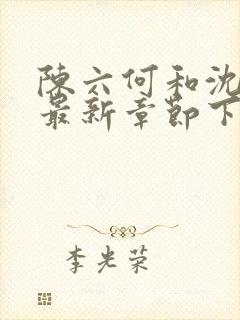 陈六何和沈
最新章节下
李光荣